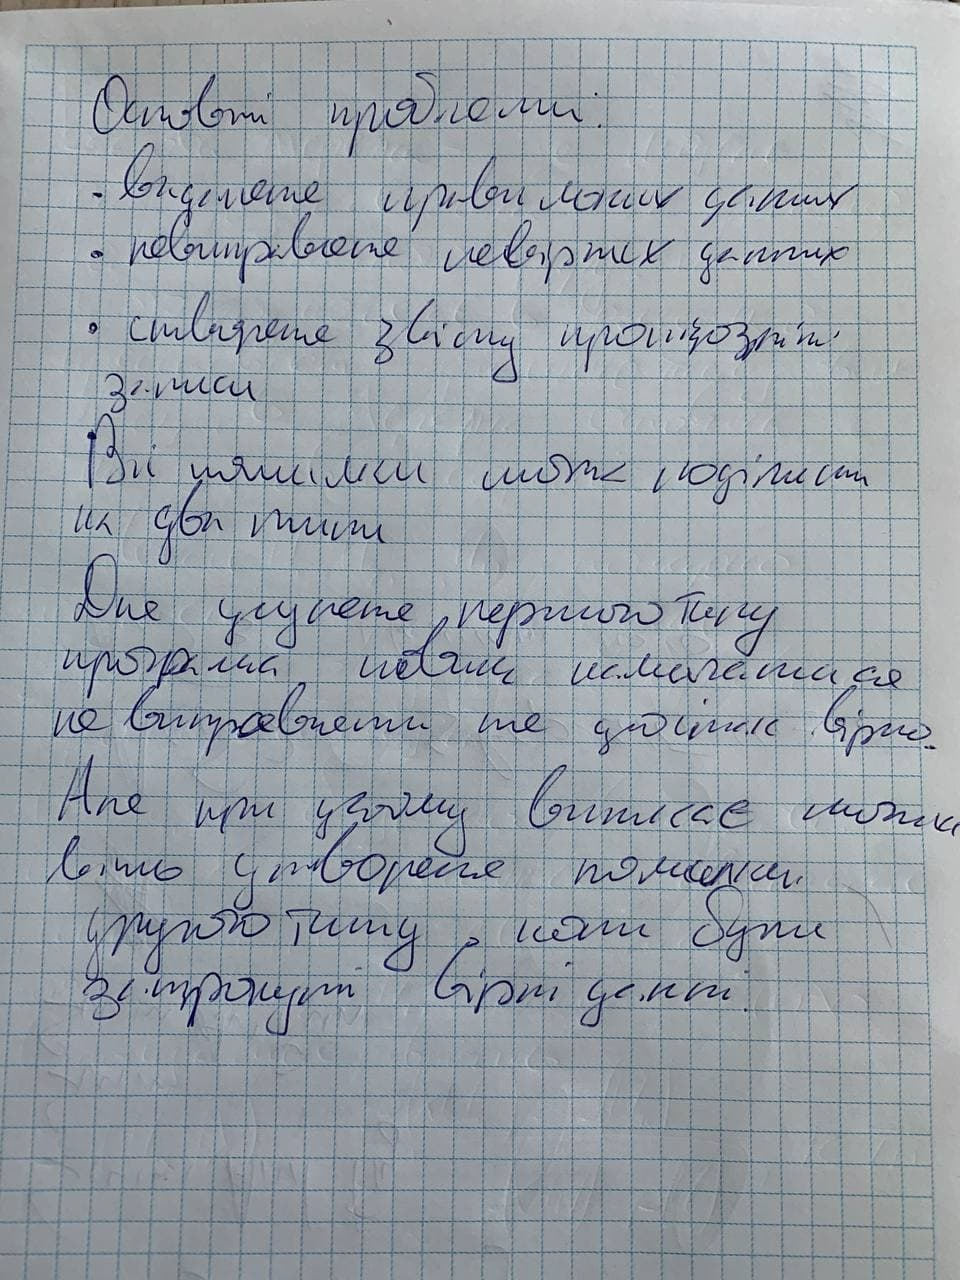 Основні проблеми:
• видалене правильних даних
• невиправлене невірних данних
• створене звіту прописі
записи
Всі помилки можна поділити
на два типи
Для усунене першого типу
програма повина намагатися
не виправляти те що інак вірно.
Але при цьому виникає можли
вість утворення помилки
другого типу, коли були
затронуті вірні данні.